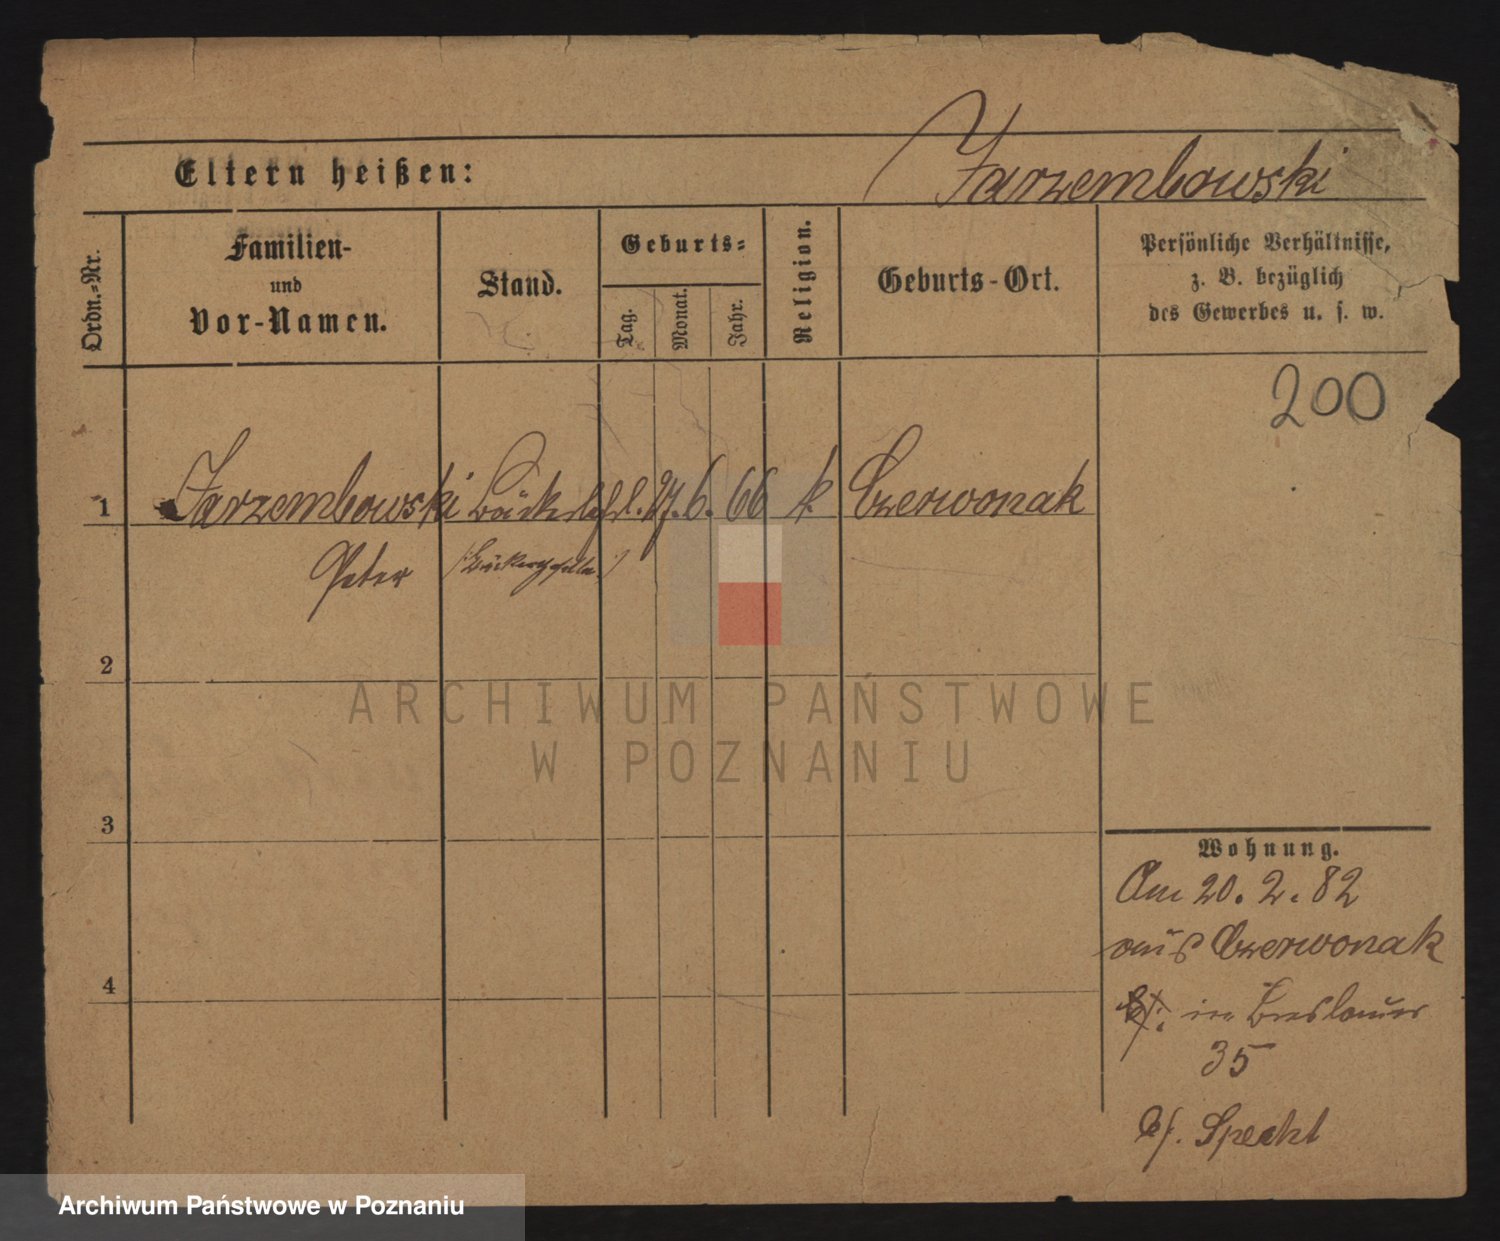 Jarzembowski
Eltern heißen:
Ordn.-Nr.
Familien-
und
Vor-Namen.
Stand.
Geburts-
Tag.
Monat.
Jahr.
Religion.
Geburts-Ort.
Persönliche Verhältnisse,
z. B. bezüglich
des Gewerbes u. s. w.
200
1 Jarzembowski 27. 6. 66 k. Czerwonak
Peter
2
3
4
Wohnung.
Am 20. 2. 82
aus Czerwonak
in Breslauer
35
b/. Specht
ARCHIWUM PAŃSTWOWE
W POZNANIU
Archiwum Państwowe w Poznaniu